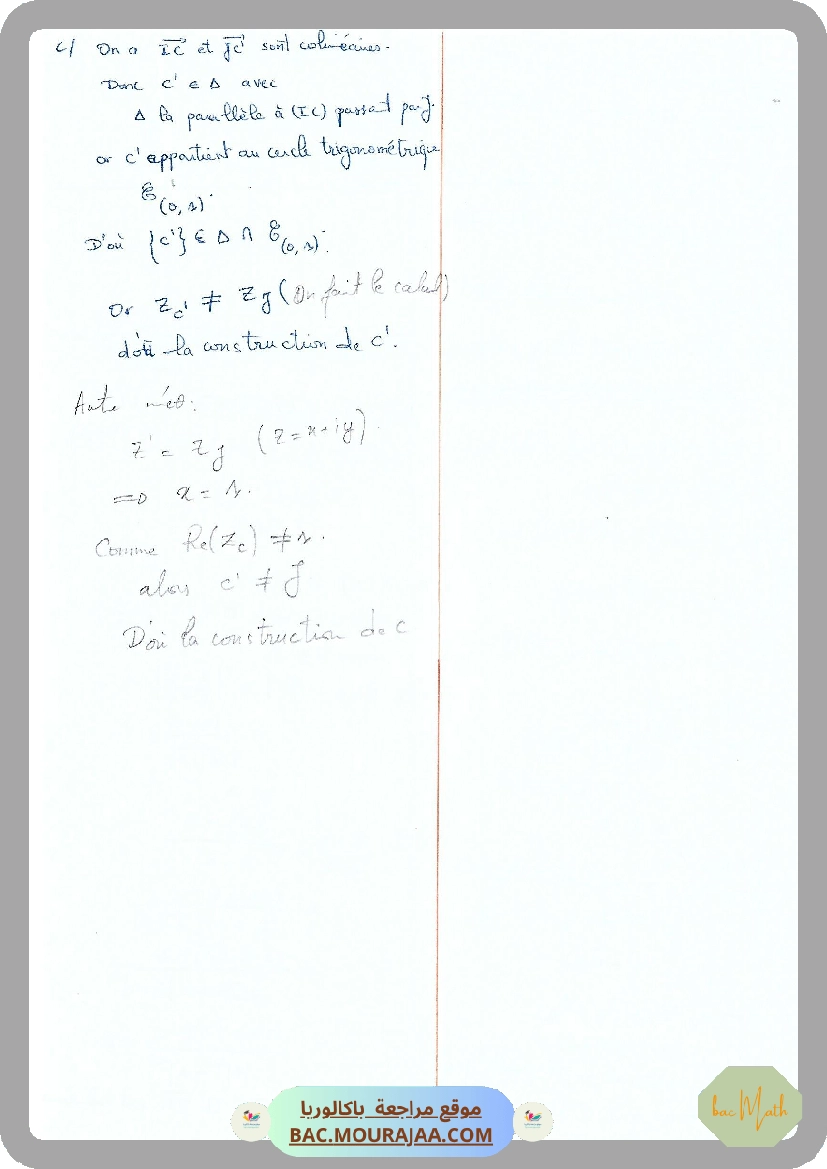 c/ On a IC et JC' sont colinéaires.
Donc C' ∈ Δ avec
Δ la parallèle à (IC) passant par J.
or C' appartient au cercle trigonométrique
𝒞(0, 1).
D'où {C'} ∈ Δ ∩ 𝒞(0, 1).
Or Z_C' ≠ Z_J (On fait le calcul)
d'où la construction de C'.
Autre
Z' = Z_J (Z = x + iy).
⟹ x = 1.
Comme Re(Z_C) ≠ 1.
alors C' ≠ J
D'où la construction de C
موقع مراجعة باكالوريا
BAC.MOURAJAA.COM
bac Math